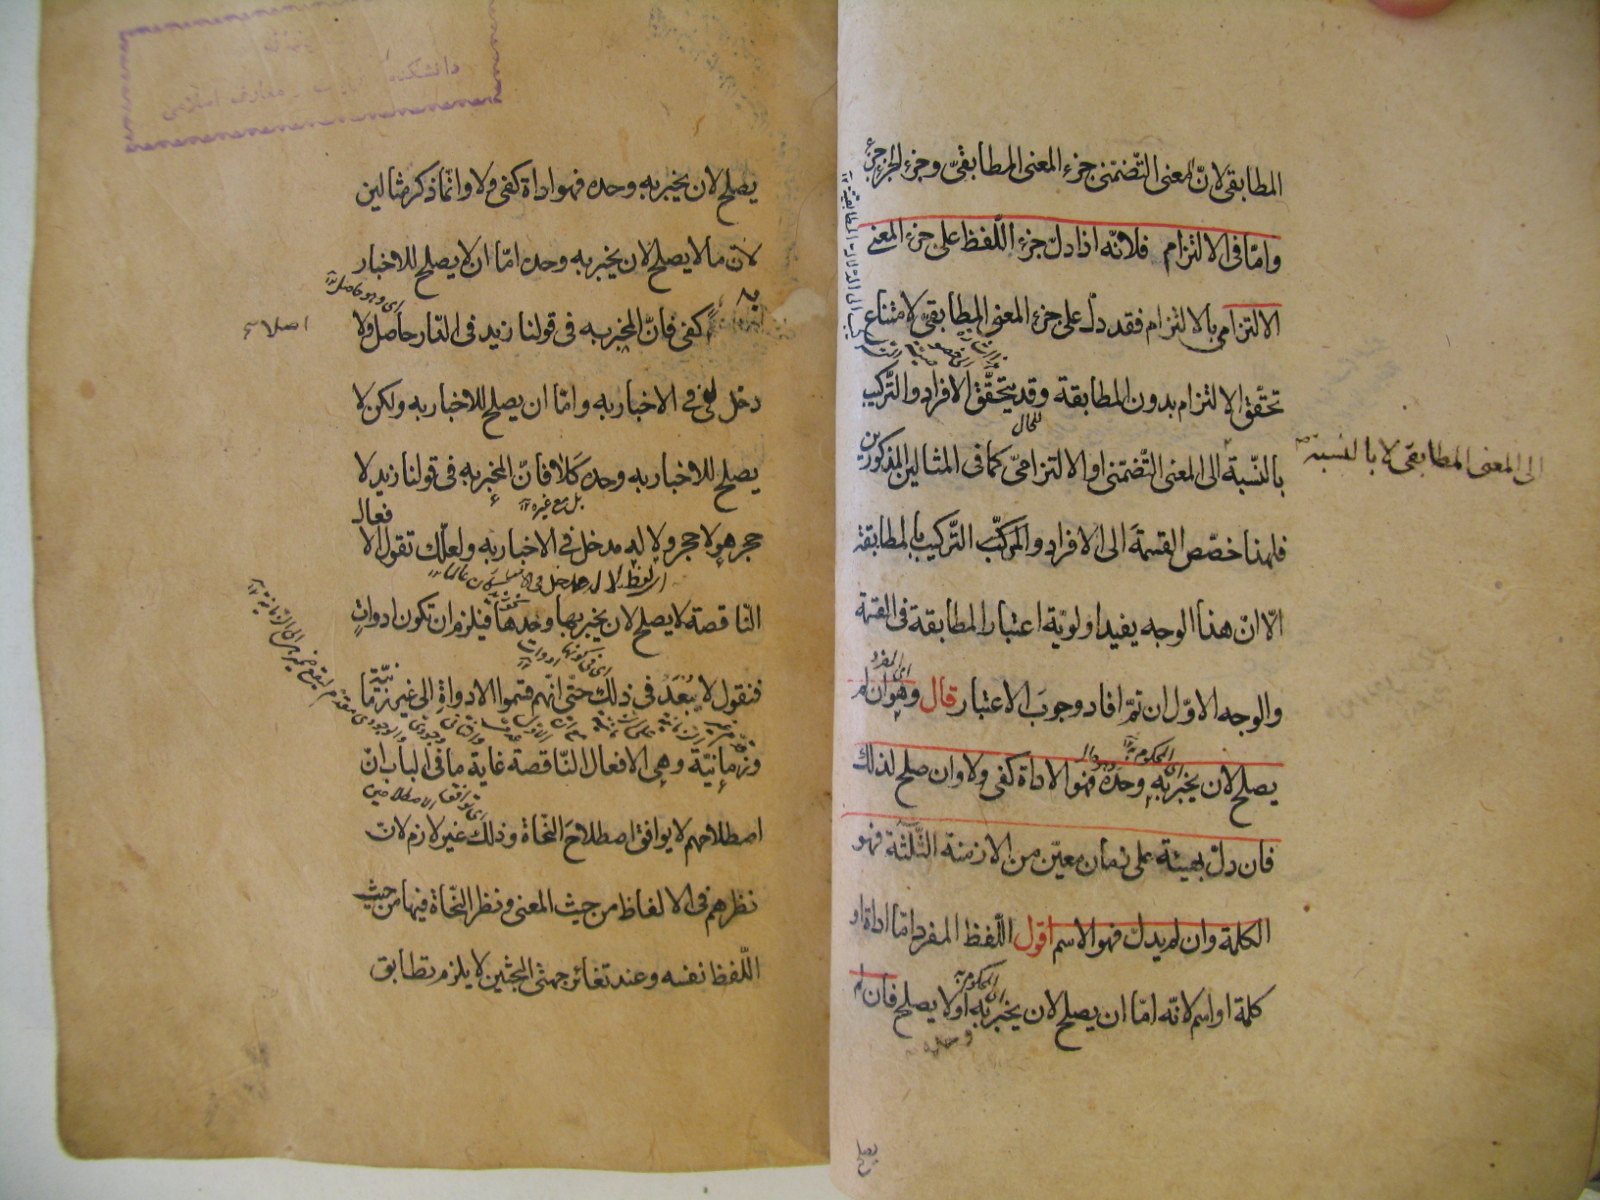 المطابقي لانّ المعنى التّضمّنى جزء المعنى المطابقىّ وجزء الجزء جزء
وامّا فى الالتزام فلانّه اذا دلّ جزء اللّفظ على جزء المعنى
الالتزامى بالالتزام فقد دلّ على جزء المعنى المطابقىّ لامتناع
تحقّق الالتزام بدون المطابقة وقد يتحقّق الافراد والتّركيب
بالنّسبة الى المعنى التّضمّنى او الالتزامىّ كما فى المثالين المذكورين
الى المعنى المطابقى لا بالنسبة
فلهذا خصّص القسمة الى الافراد والمركّب التّركيب بالمطابقة
الّا انّ هذا الوجه يفيد اولويّة اعتبار المطابقة فى القسمة
والوجه الاوّل ان تمّ افاد وجوبَ الاعتبار قال وهو ان لم
اى المفرد
يصلح لان يخبر به وحده فهو الاداة كفى ولا وان صلح لذلك
فان دلّ بهيئة على زمان معيّن من الازمنة الثّلثة فهو
الكلمة وان لم يدلّ فهو الاسم اقول اللّفظ المفرد امّا اداة او
كلمة او اسم لانّه امّا ان يصلح لان يخبر به او لا يصلح فان لم
يصلح
يصلح لان يخبر به وحده فهو اداة كفى ولا وانّما ذكر مثالين
لانّ ما لا يصلح لان يخبر به وحده امّا ان لا يصلح للاخبار
به
اصلا
كفى فانّ المخبر به فى قولنا زيد فى الدّار حاصل ولا
اى وهو حاصل
دخل لفى فى الاخبار به وامّا ان يصلح للاخبار به ولكن لا
يصلح للاخبار به وحده كَلا فانّ المخبر به فى قولنا زيد لا
بل مع غيره
حجر هو لا حجر ولا له مدخل فى الاخبار به ولعلّك تقول الافعال
النّاقصة لا يصلح لان يخبر بها وحدها فيلزم ان تكون ادوات
اى فى كونها ادوات
فنقول لا يُبْعَدُ فى ذلك حتّى انّهم قسّموا الادواة الى غير زمانيّة
وزمانيّة وهى الافعال النّاقصة غاية ما فى الباب انّ
اصطلاحهم لا يوافق اصطلاحَ النّحاة وذلك غير لازم لانّ
نظرهم فى الالفاظ من حيث المعنى ونظر النّحاة فيها من حيث
اللّفظ نفسه وعند تغائر جهتى البحثين لا يلزم تطابق